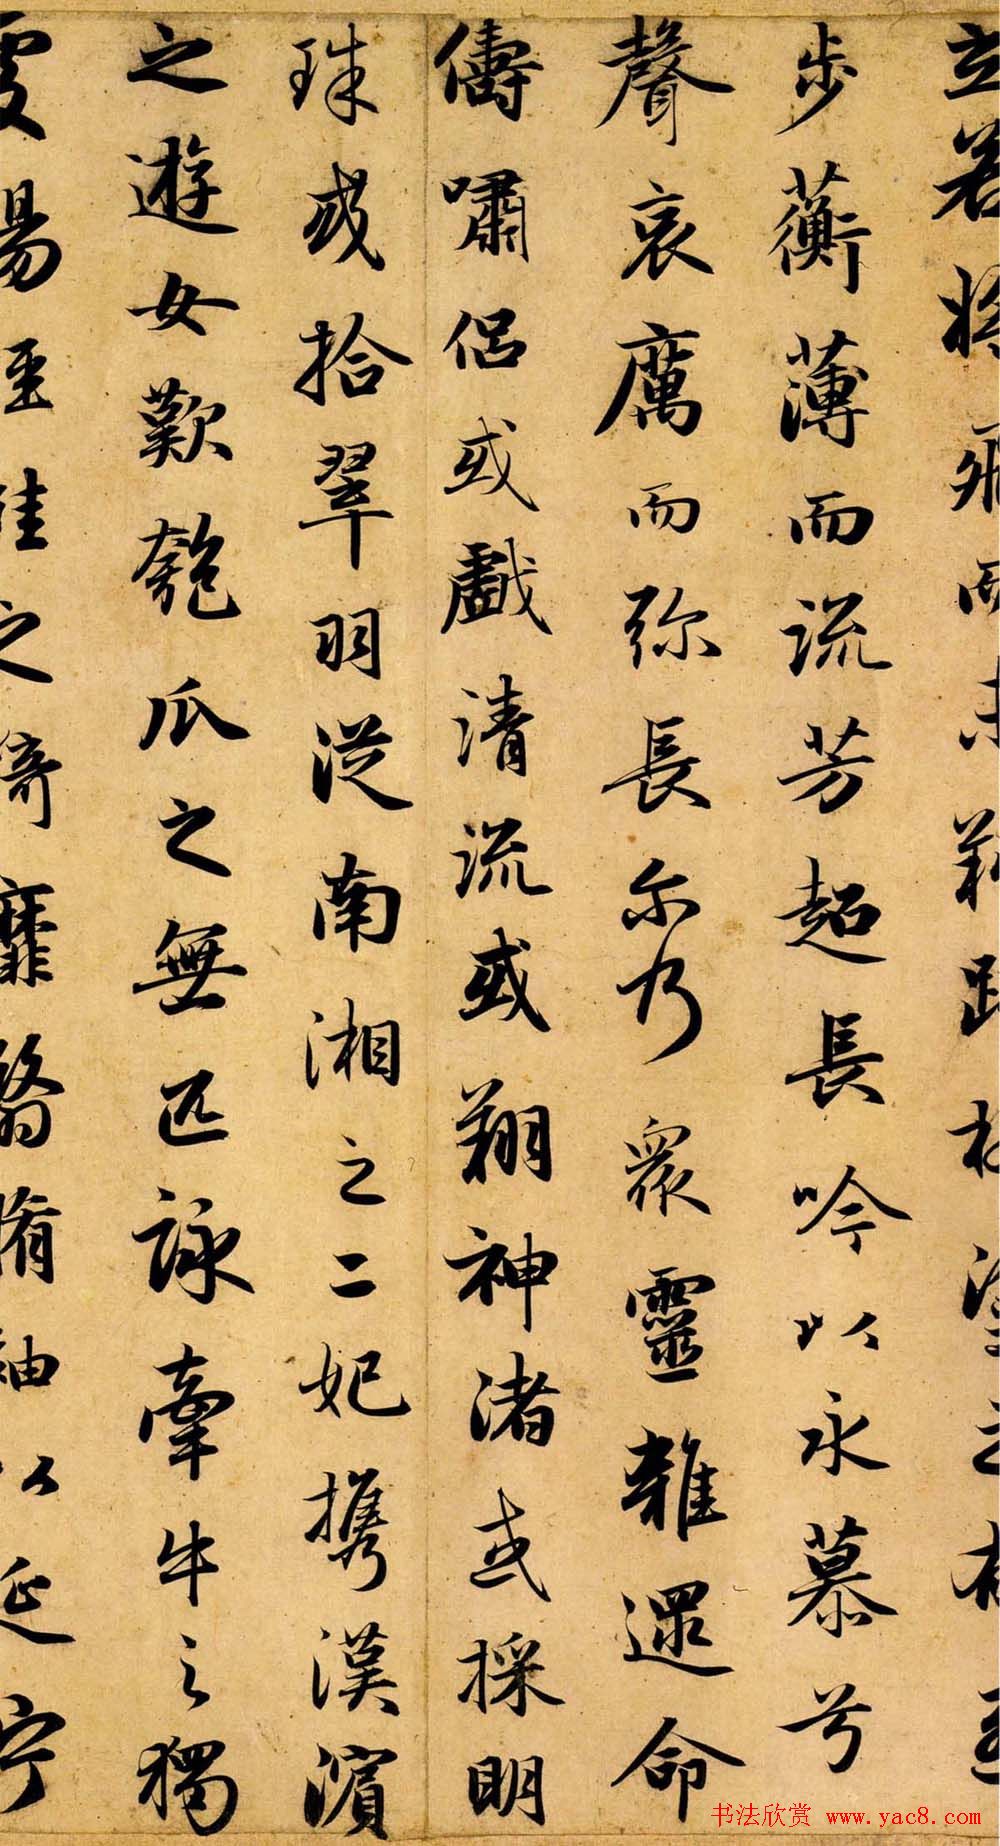 立若將飛而未翔踐椒塗之郁烈
步蘅薄而流芳超長吟以永慕兮
聲哀厲而弥長尔乃衆靈雜遝命
儔嘯侶或戲清流或翔神渚或採明
珠或拾翠羽從南湘之二妃携漢濱
之遊女歎匏瓜之無匹詠牽牛之獨
處揚輕袿之綺靡翳脩袖以延佇
书法欣赏 www.yac8.com